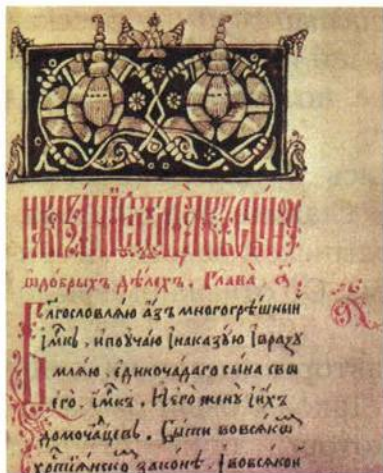 наказание ѿ ѿца къ сыну
ѿдобрыхъ дѣлехъ. Глава а҃
Блгословляю азъ многогрѣшныи
імкъ. ипоучаю інаказꙋю івразꙋ
мляю. единочадаго сына сво
его. імкъ. Иего женꙋ іихъ
домочадцевъ. Быти вовсякомъ
христіянскомъ законѣ. Івовсякои